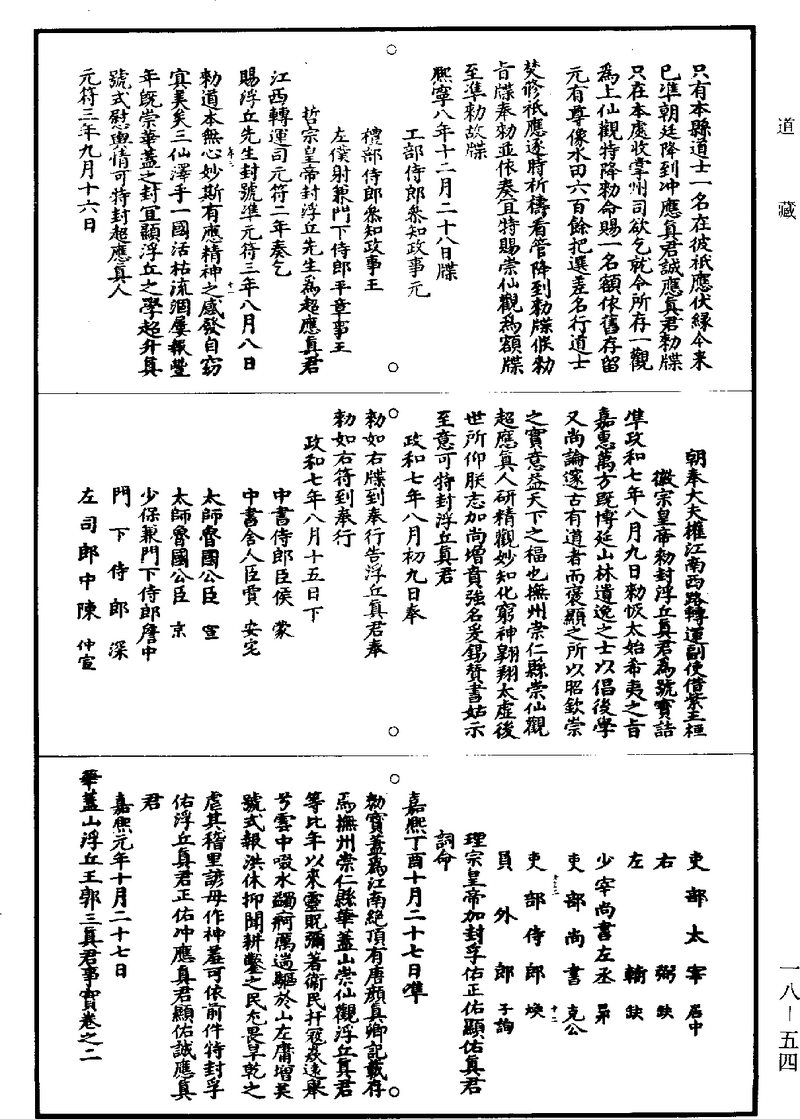 道藏
只有本縣道士一名在彼祇應伏緣今來
已準朝廷降到沖應真君誠應真君勅牒
只在本處收掌州司欲乞就令所存一觀
為上仙觀特降勅命賜一名額依舊存留
元有尊像水田六百餘把選差名行道士
焚修祇應逐時祈禱看管降到勅牒候勅
旨牒奉勅並依奏宜特賜崇仙觀為額牒
至準勅故牒
熙寧八年十二月二十八日牒
工部侍郎叅知政事元
禮部侍郎叅知政事王
左僕射兼門下侍郎平章事王
哲宗皇帝封浮丘先生為超應真君
江西轉運司元符二年奏乞
賜浮丘先生封號準元符三年八月八日
勅道本無心妙斯有應精神之感發自窈
冥美矣三仙澤乎一國活枯流涸屢報豐
年既崇華蓋之封宜顯浮丘之學超升真
號式慰輿情可特封超應真人
元符三年九月十六日
朝奉大夫權江南西路轉運副使借紫王桓
徽宗皇帝勅封浮丘真君為號實誥
準政和七年八月九日勅恢太始希夷之旨
嘉惠萬方既博延山林遺逸之士以倡後學
又尚論邃古有道者而褒顯之所以昭欽崇
之實意益天下之福也撫州崇仁縣崇仙觀
超應真人研精觀妙知化窮神翺翔太虛後
世所仰朕志加尚增賁強名爰錫贊書姑示
至意可特封浮丘真君
政和七年八月初九日奉
勅如右牒到奉行告浮丘真君奉
勅如右符到奉行
政和七年八月十五日下
中書侍郎臣侯 蒙
中書舍人臣賈 安宅
太師魯國公臣 宣
太師魯國公臣 京
少保兼門下侍郎詹中
門下侍郎 深
左司郎中陳 仲宣
吏部太宰 居中
右 弼 缺
左 輔 缺
少宰尚書左丞 昴
吏部尚書 克公
吏部侍郎 煥
員外郎 子詢
理宗皇帝加封孚佑正佑顯佑真君
詞命
嘉熙丁酉十月二十七日準
勅寶蓋為江南絕頂有唐顏真卿記載存
焉撫州崇仁縣華蓋山崇仙觀浮丘真君
等比年以來靈貺彌著衛民扞寇焱遠舉
兮雲中噀水蠲痾厲遄驅於山左庸增美
號式報洪休抑聞耕鑿之民尤畏旱乾之
虐其稽里諺毋作神羞可依前件特封孚
佑浮丘真君正佑沖應真君顯佑誠應真
君
嘉熙元年十月二十七日
華蓋山浮丘王郭三真君事實卷之二
一八－五四